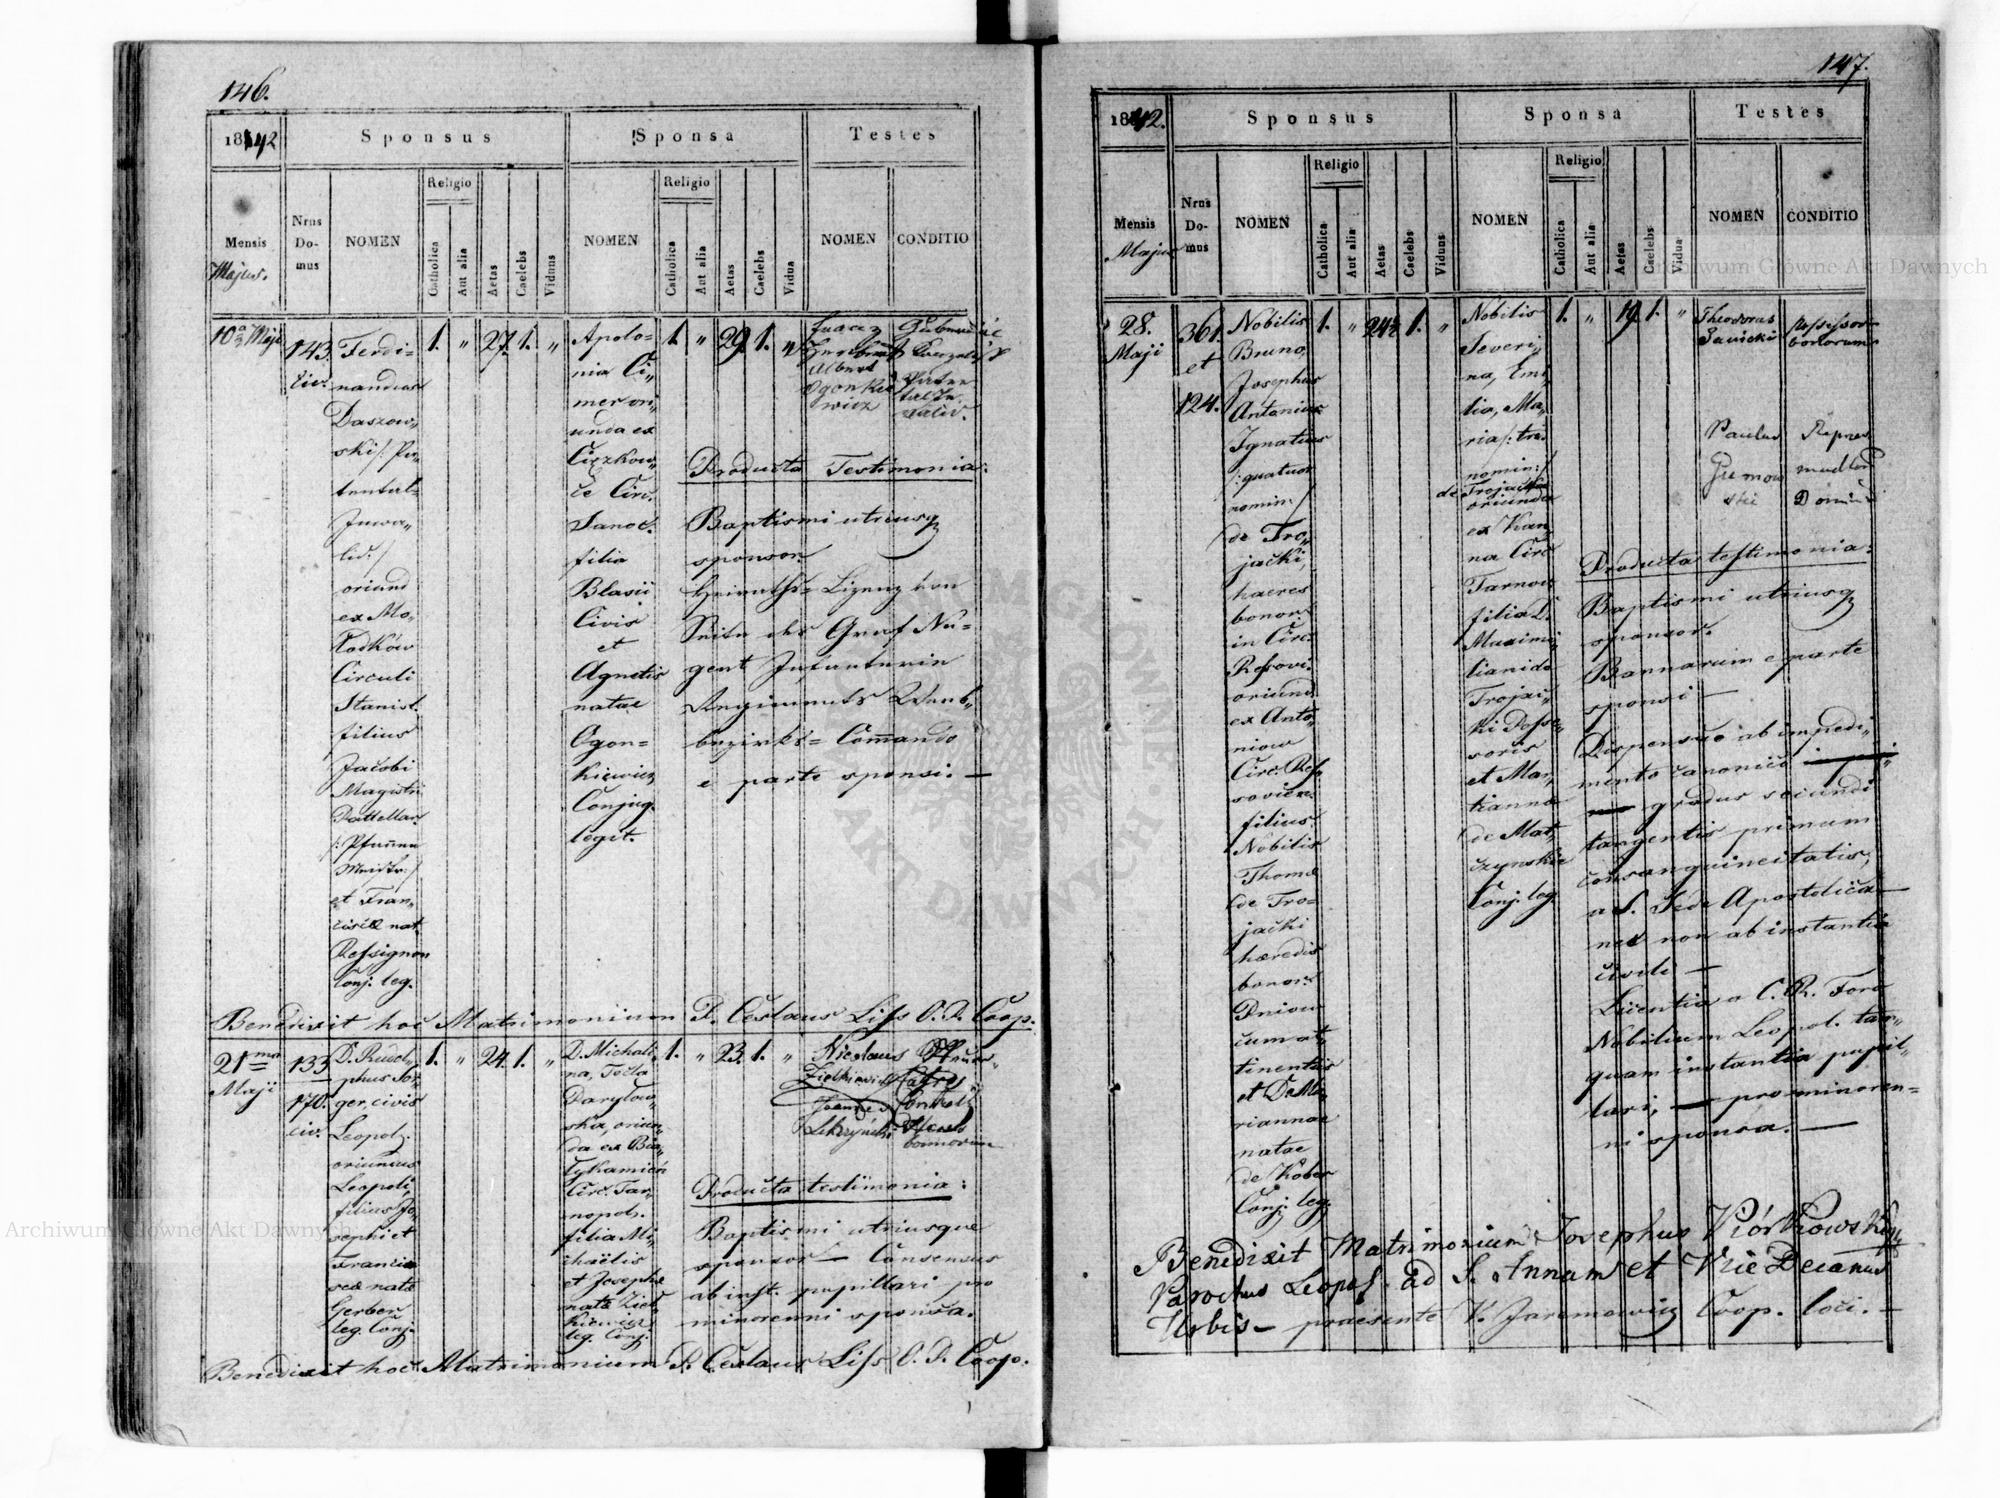 146.
1842
Sponsus
Sponsa
Testes
Mensis
Majus.
Nrus
Do-
mus
NOMEN
Religio
Catholica
Aut alia
Aetas
Caelebs
Viduus
NOMEN
Religio
Catholica
Aut alia
Aetas
Caelebs
Vidua
NOMEN
CONDITIO
10a Maji
143.
civ.
Ferdi-
nandus
Daszow„
ski /: Pa„
tental-
Inva„
lid. /
oriund
ex Mo„
Circuli
Stanisl.
filius
Jacobi
Magistri
et Fran„
ciscæ nat.
Ressignon
Conj. leg.
1. „ 27. 1. „
Apolo=
nia Ci„
mer ori„
unda ex
Ciężkow„
ce Circ.
Sanoc.
filia
Blasii
Civis
et
Agnetis
natae
Ogon=
kiewicz
Conjug.
legit.
1. „ 29. 1. „
Albert
Ogonkie
wicz
Producta Testimonia:
Baptismi utriusq
sponsor.
Heiraths= Lizenz von
Seite des Graf Nu=
gent Infanterie
Regiments Werb„
bezirks= Commando
e parte sponsi. —
Benedixit hoc Matrimonium P. Ceslaus Liss O. P. Coop.
21ma
Maji
133
170.
civ.
D. Rudol„
phus So„
ger, civis
Leopol.
oriundus
Leopoli,
filius Jo„
sephi et
Francis
scæ natæ
Gerber
leg. Conj.
1. „ 24. 1. „
D. Michali„
na, Tecla
Daryłow„
ska, oriun„
da ex Bia„
łykamień
Circ. Tar„
nopol.
filia Mi„
chaëlis
et Josephæ
natæ Ziel„
kiewicz
leg. Conj.
1. „ 23. 1. „
Nicolaus
Zielkiewicz
Joannes
bonorum
Producta testimonia:
Baptismi utriusque
sponsor — Consensus
ab inst. pupillari pro
minorenni sponsa.
Benedixit hoc Matrimonium P. Ceslaus Liss O. P. Coop.
147.
1842.
Sponsus
Sponsa
Testes
Mensis
Majus
Nrus
Do-
mus
NOMEN
Religio
Catholica
Aut alia
Aetas
Caelebs
Viduus
NOMEN
Religio
Catholica
Aut alia
Aetas
Caelebs
Vidua
NOMEN
CONDITIO
28.
Maji
361.
et
124.
Nobilis
Bruno,
Josephus
Antonius
Ignatius
/: quatuor
nomin: /
de Tro„
jacki,
haeres
bonor.
in Circ.
oriund.
ex Anto„
niow
filius
Nobilis
Thomæ
de Tro=
jacki
hæredis
bonor.
Dniow
cum at„
tinentiis
et D. Ma„
riannae
natae
de Kober
Conj. leg.
1. „ 24½ 1. „
Nobilis
Severi„
na, Emi„
lia, Ma„
ria /: tri
nomin: /
de Trojacki
oriunda
ex Kan„
na Circ
Tarnow
filia D.
Maximi„
liani de
Trojac„
ki Posse„
soris
et Mar„
cianna
de Mat„
czynskie
Conj. leg.
1. „ 19. 1. „
Theodorus
Sawicki
possessor
bonorum
Paulus
Producta testimonia:
Baptismi utriusq
sponsor.
Bannarum e parte
sponsi —
Dispensae ab impedi„
mento canonici
gradus secundi
tangentis primum
consanguineitatis,
a S. Sede Apostolica —
nec non ab instantia
civili —
Licentia a C. R. Foro
Nobilium Leopol. tan„
quam instantia pupil„
lari, — pro minoren=
ni sponsa. —
Benedixit Matrimonium Josephus Wiórkowski
Parochus Leopol. ad S. Annam et Vice Decanus
Urbis — praesente V. Jaremowicz Coop. loci. —
Archiwum Główne Akt Dawnych
Archiwum Główne Akt Dawnych